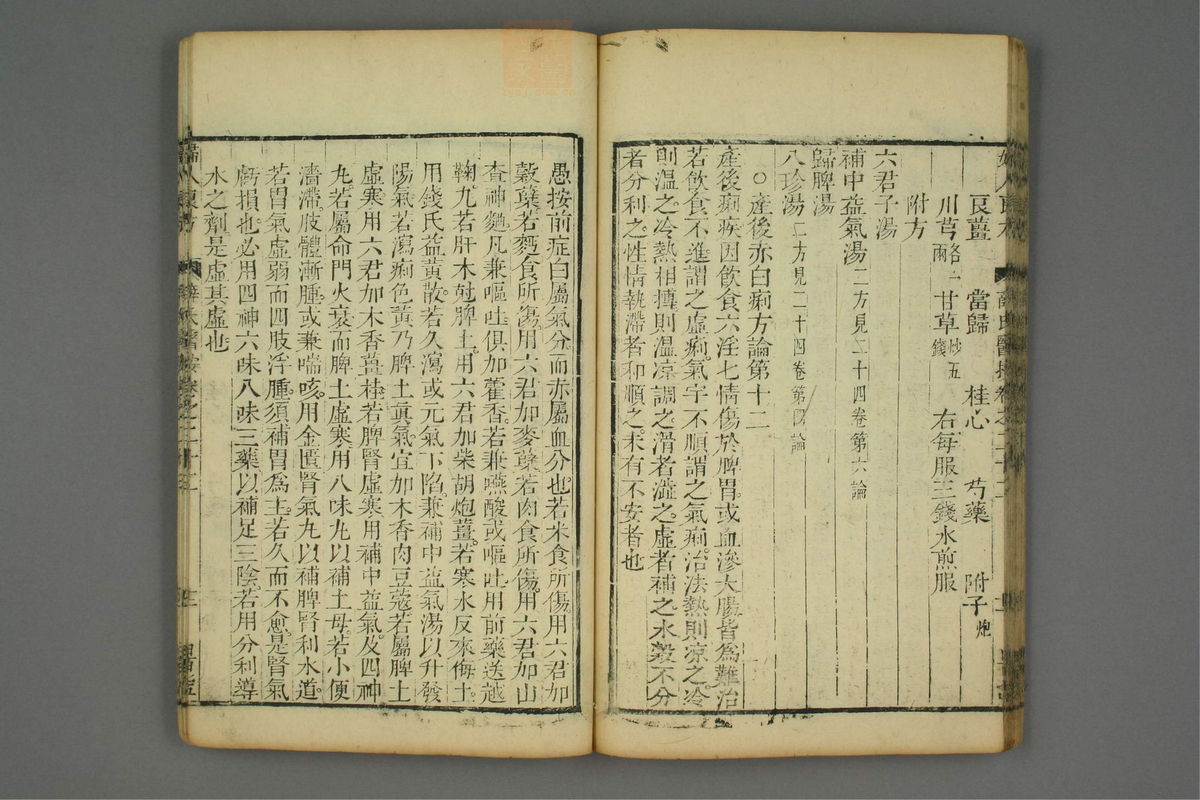 良薑 當歸 桂心 芍藥 附子炮
川芎各一兩 甘草炒五錢 右每服三錢水煎服
附方
六君子湯
補中益氣湯二方見二十四卷第六論
歸脾湯
八珍湯二方見二十四卷第四論
○產後赤白痢方論第十二
產後痢疾因飲食六淫七情傷於脾胃或血滲大腸皆為難治
若飲食不進謂之虛痢氣宇不順謂之氣痢治法熱則凉之冷
則温之冷熱相摶則温凉調之滑者澁之虛者補之水穀不分
者分利之性情執滯者和順之未有不安者也
愚按前症白屬氣分而赤屬血分也若米食所傷用六君加
穀蘖若麵食所傷用六君加麥蘖若肉食所傷用六君加山
查神麴凡兼嘔吐俱加藿香若兼嚥酸或嘔吐用前藥送越
鞠尤若肝木尅脾土用六君加柴胡炮薑若寒水反來侮土
用錢氏益黃散若久瀉或元氣下陷兼補中益氣湯以升發
陽氣若瀉痢色黃乃脾土真氣宜加木香肉豆蔻若屬脾土
虛寒用六君加木香薑桂若脾腎虛寒用補中益氣及四神
丸若屬命門火衰而脾土虛寒用八味丸以補土母若小便
濇滯肢體漸腫或兼喘咳用金匱腎氣丸以補脾腎利水道
若胃氣虛弱而四肢浮腫須補胃爲主若久而不愈是腎氣
虧損也必用四神六味八味三藥以補足三陰若用分利導
水之劑是虛其虛也